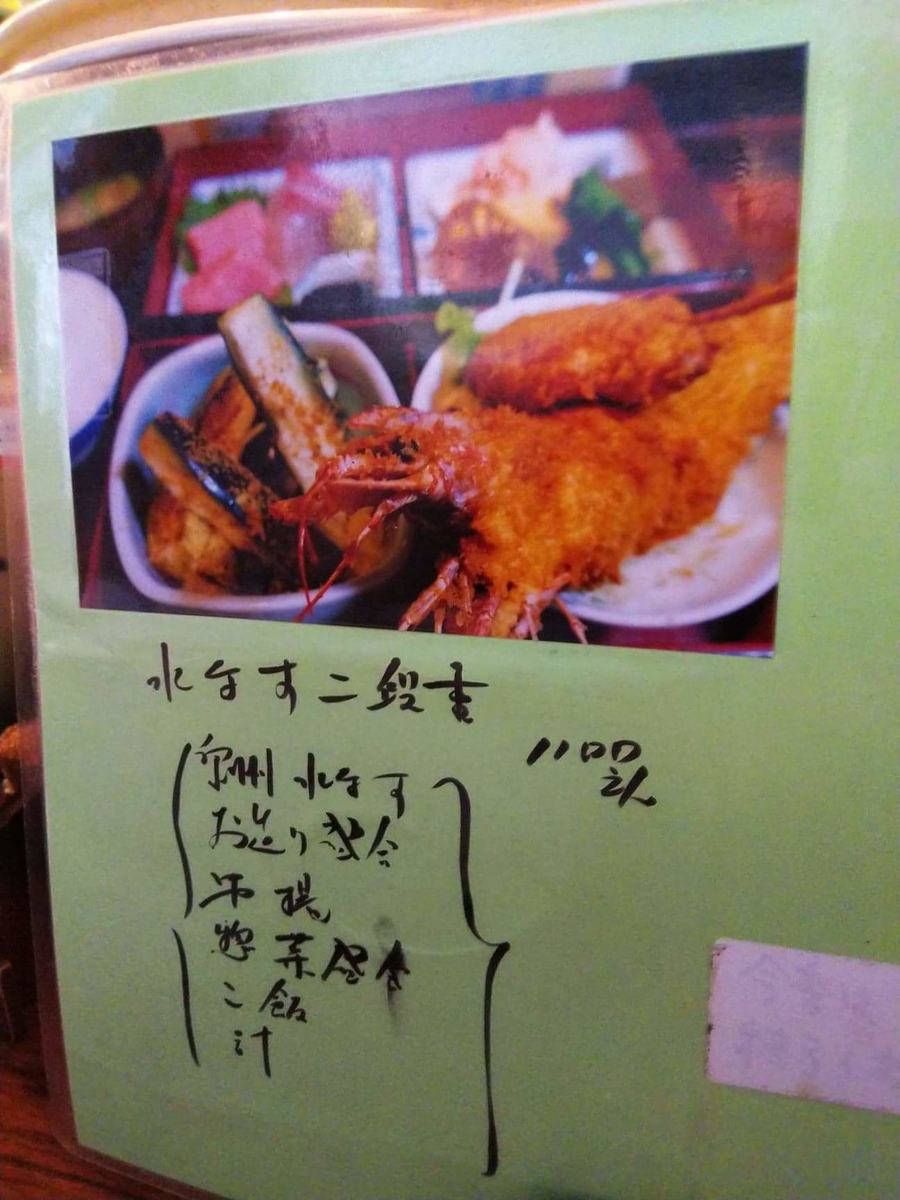 水なす二段重
1100えん
泉州 水なす
お造り盛合
串揚
惣菜盛合
ご飯
汁